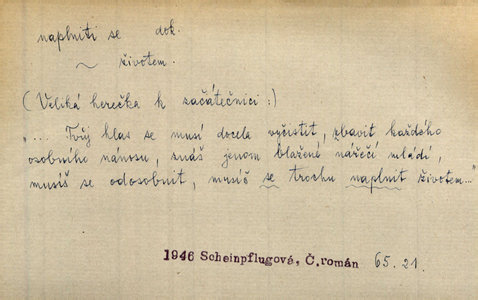 naplniti se dok.
~ životem.
(Veliká herečka k začátečnici:)
„... Tvůj hlas se musí docela vyčistit, zbavit každého
osobního nánosu, znáš jenom blažené nářečí mládí,
musíš se odosobnit, musíš se trochu naplnit životem..."
1946 Scheinpflugová, Č.román 65.21.